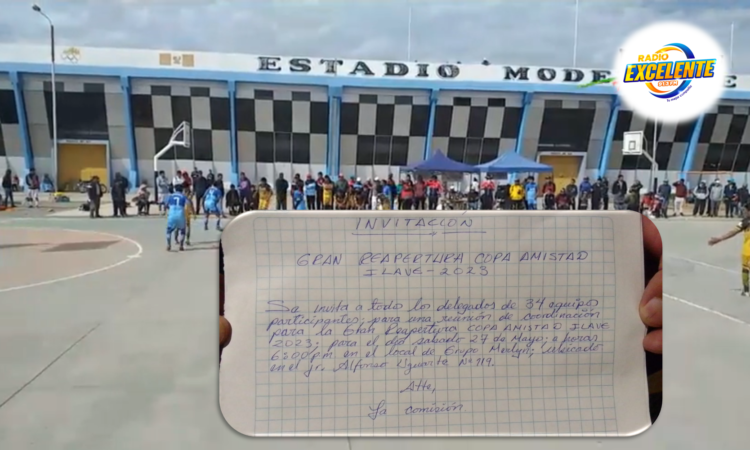 ESTADIO MODE
RADIO
EXCELENTE
INVITACION
GRAN REAPERTURA COPA AMISTAD
ILAVE - 2023
Se invita a todo los delegados de 34 equipos
participantes, para una reunión de coordinación
para la Gran Reapertura COPA AMISTAD ILAVE
2023; para el día sabado 27 de Mayo; a horas
6:00 p.m. en el local de Grupo ubicado
en el jr. Alfonso Ugarte N° 919.
Atte,
La comisión